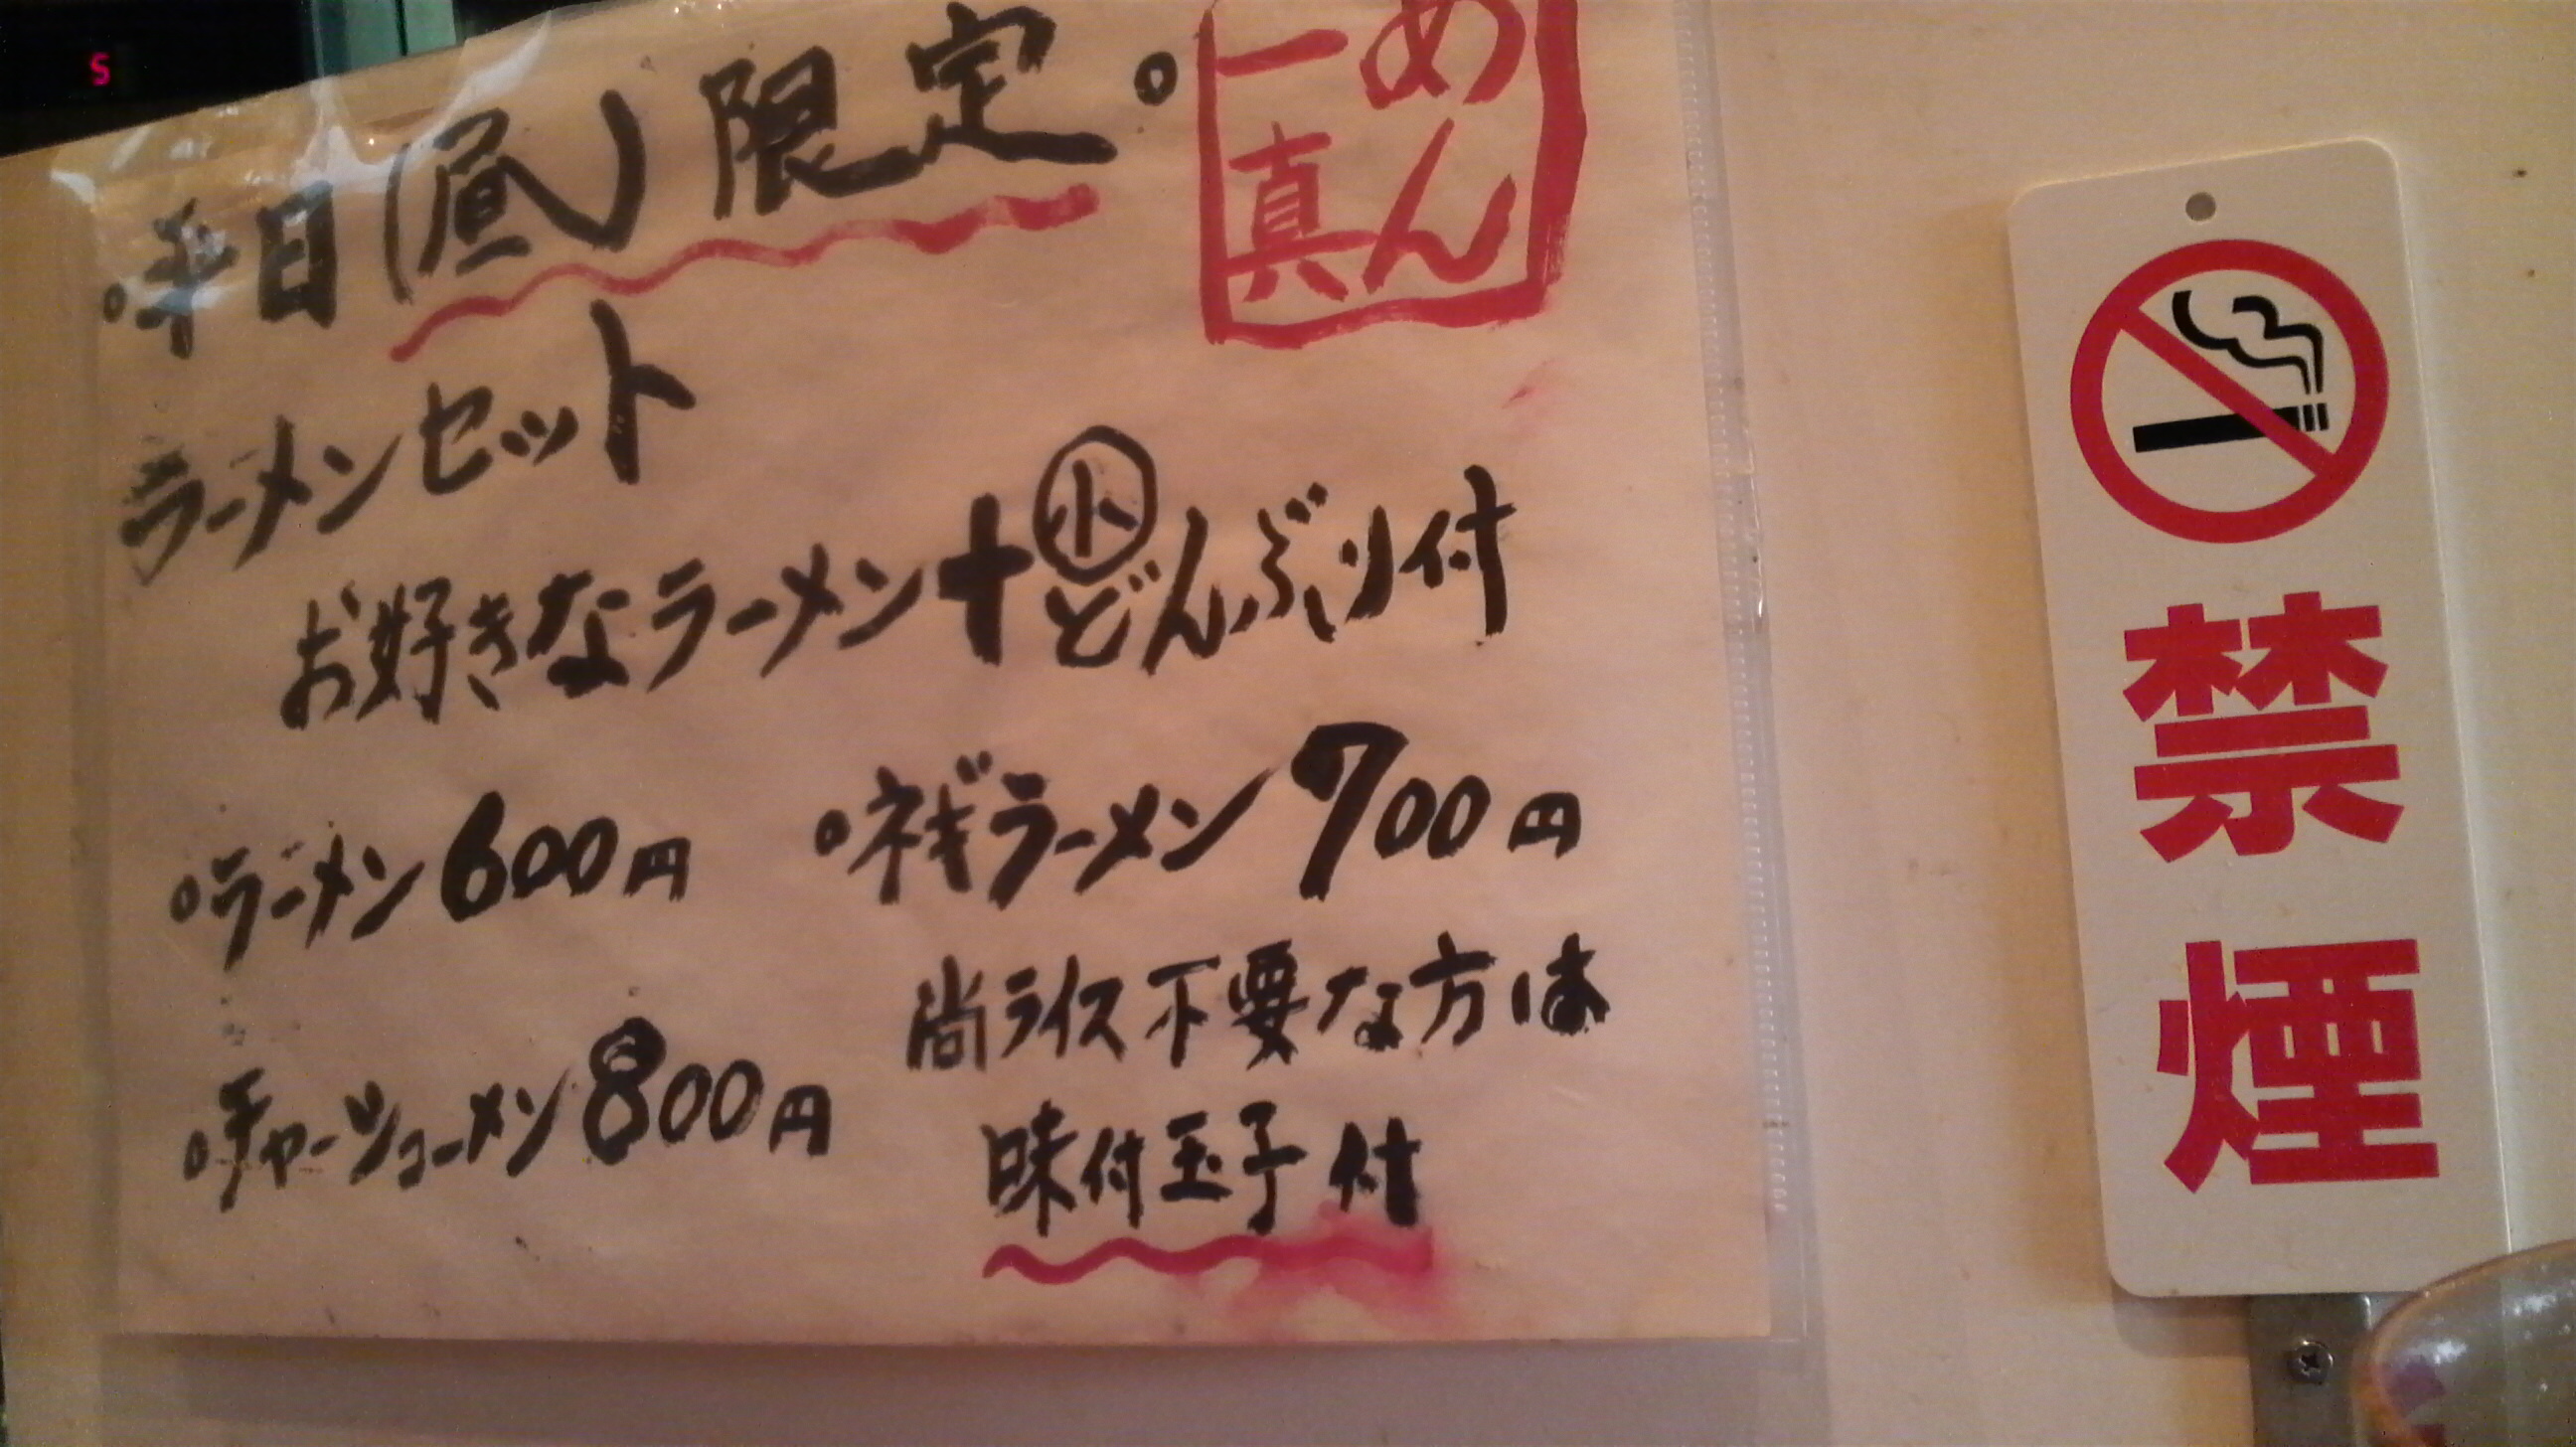 。平日(昼)限定。
めん
一真
ラーメンセット
お好きなラーメン+㊛どんぶり付
。ラーメン600円
。ネギラーメン700円
。チャーシューメン800円
尚ライス不要な方は
味付玉子付
禁煙
S